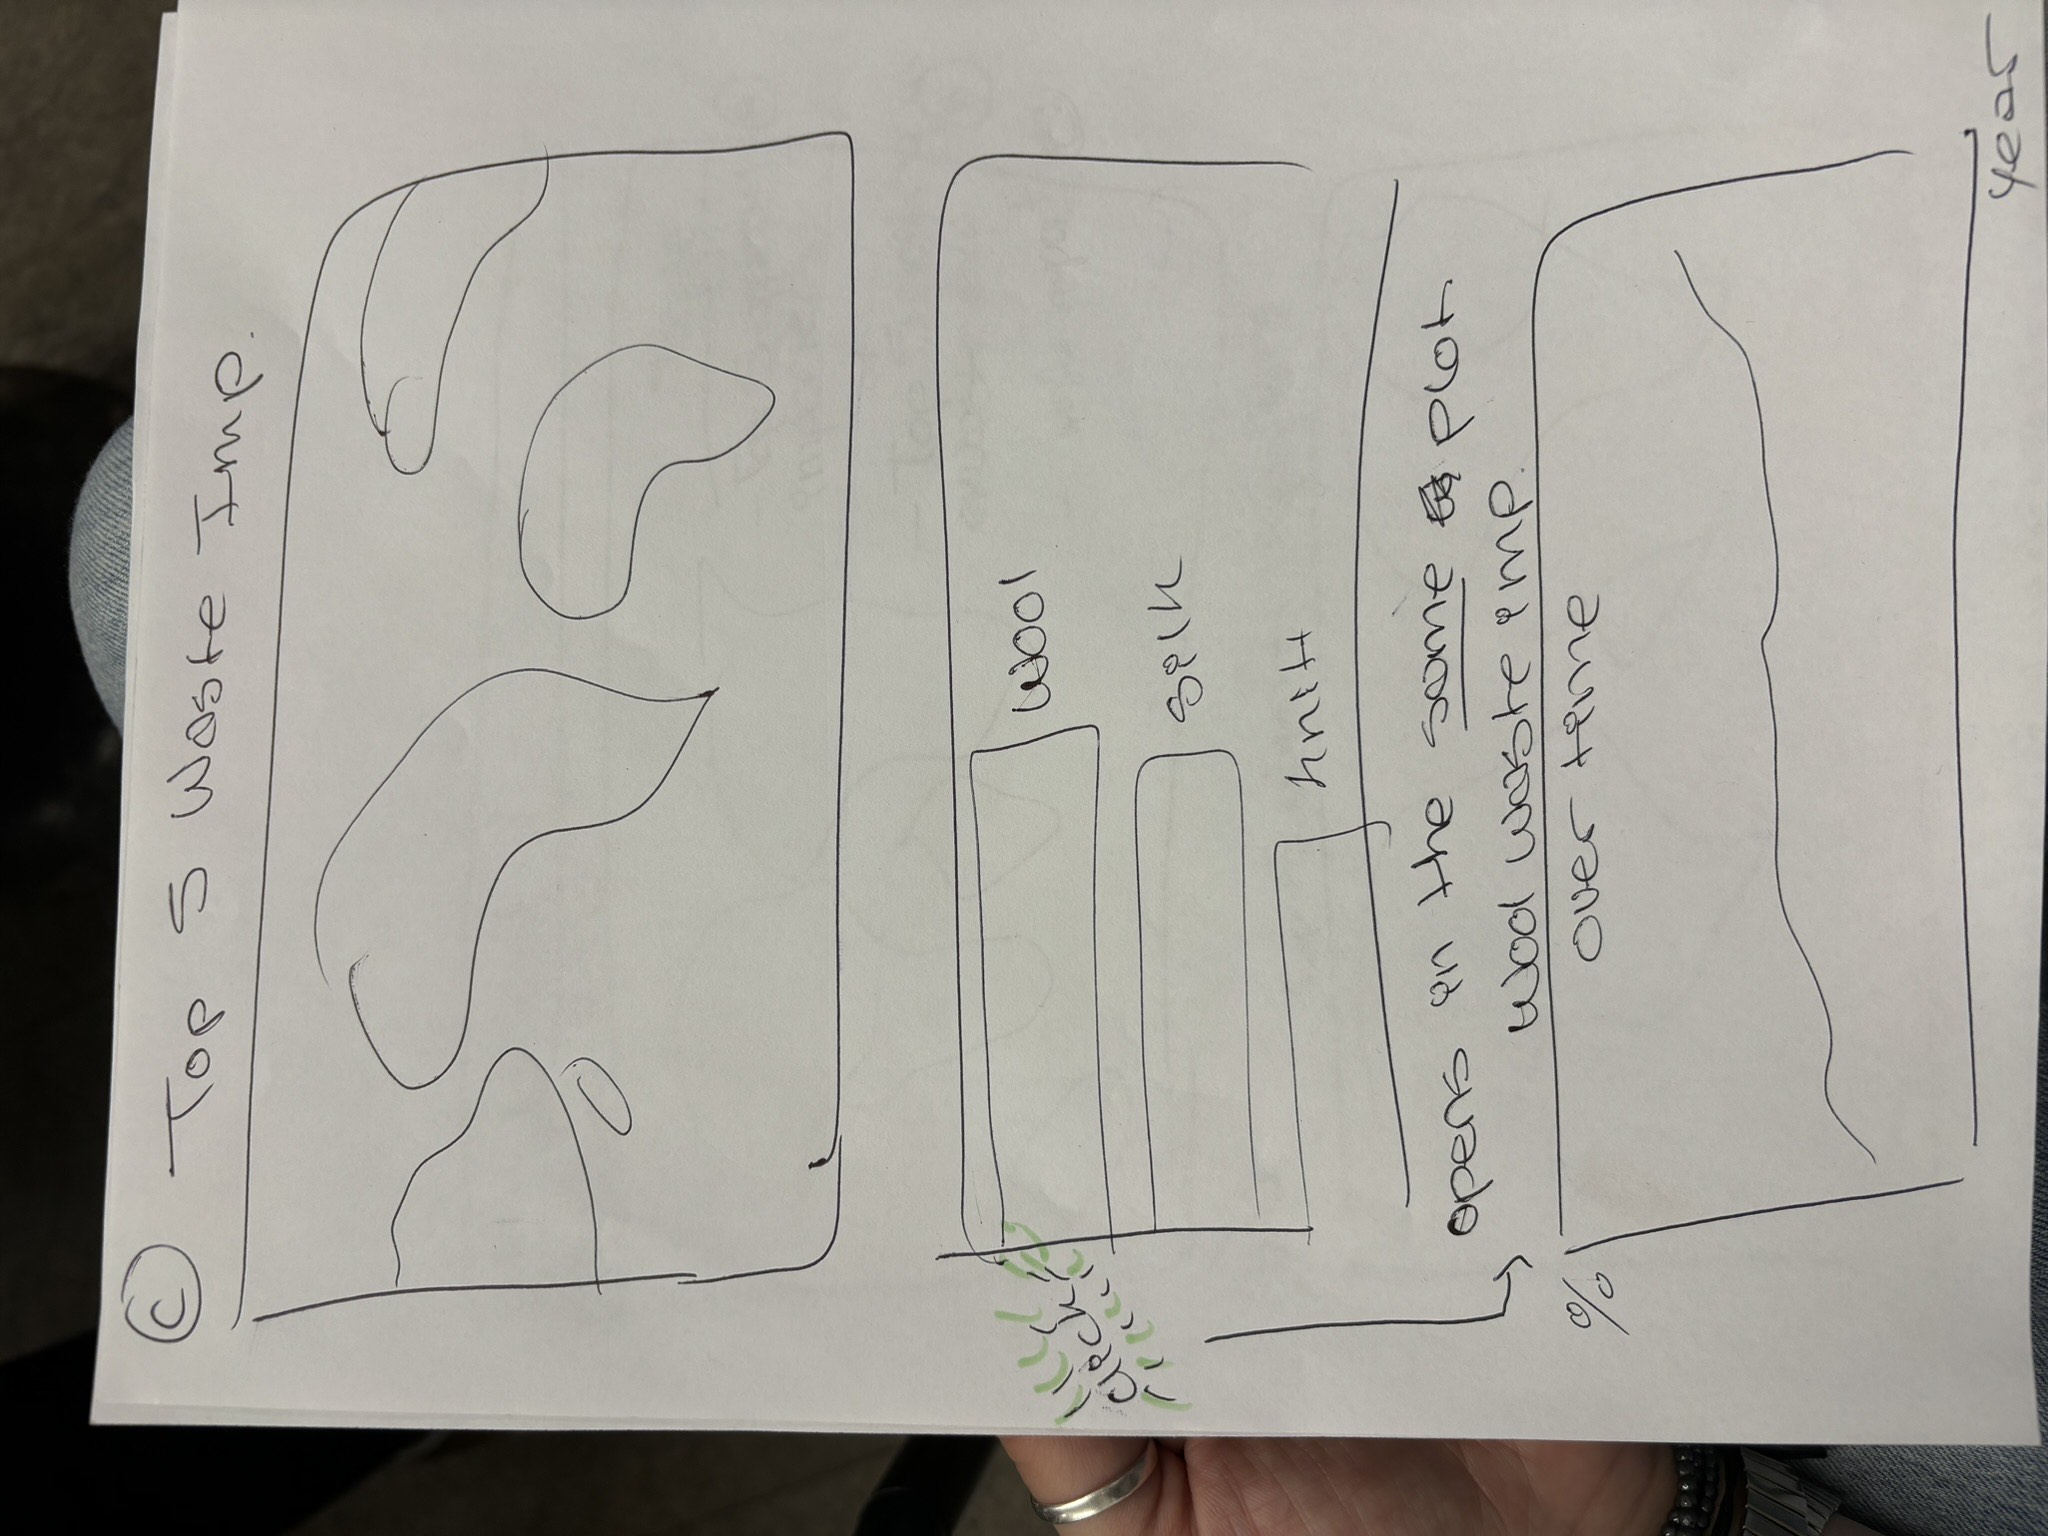 C Top 5 Waste Imp.
Wool
Silk
click
opens in the same plot
Wool waste imp.
over time
%
year